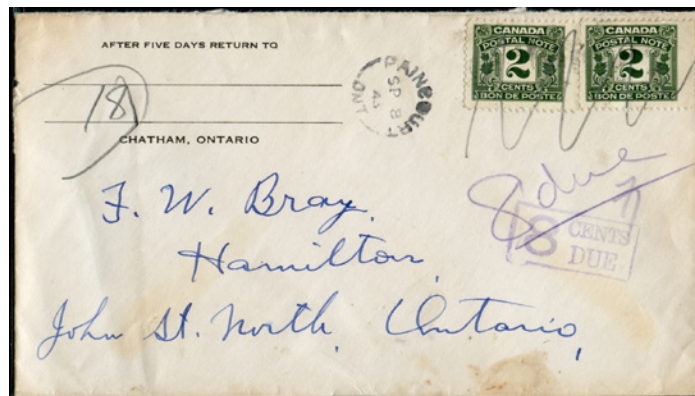 AFTER FIVE DAYS RETURN TO
18
CHATHAM, ONTARIO
PAINCOURT
ONT
SP 8
CANADA
POSTAL NOTE
2
CENTS
BON DE POSTE
CANADA
POSTAL NOTE
2
CENTS
BON DE POSTE
8 due
8 CENTS
DUE
F. W. Bray.
Hamilton,
John St. North, Ontario,